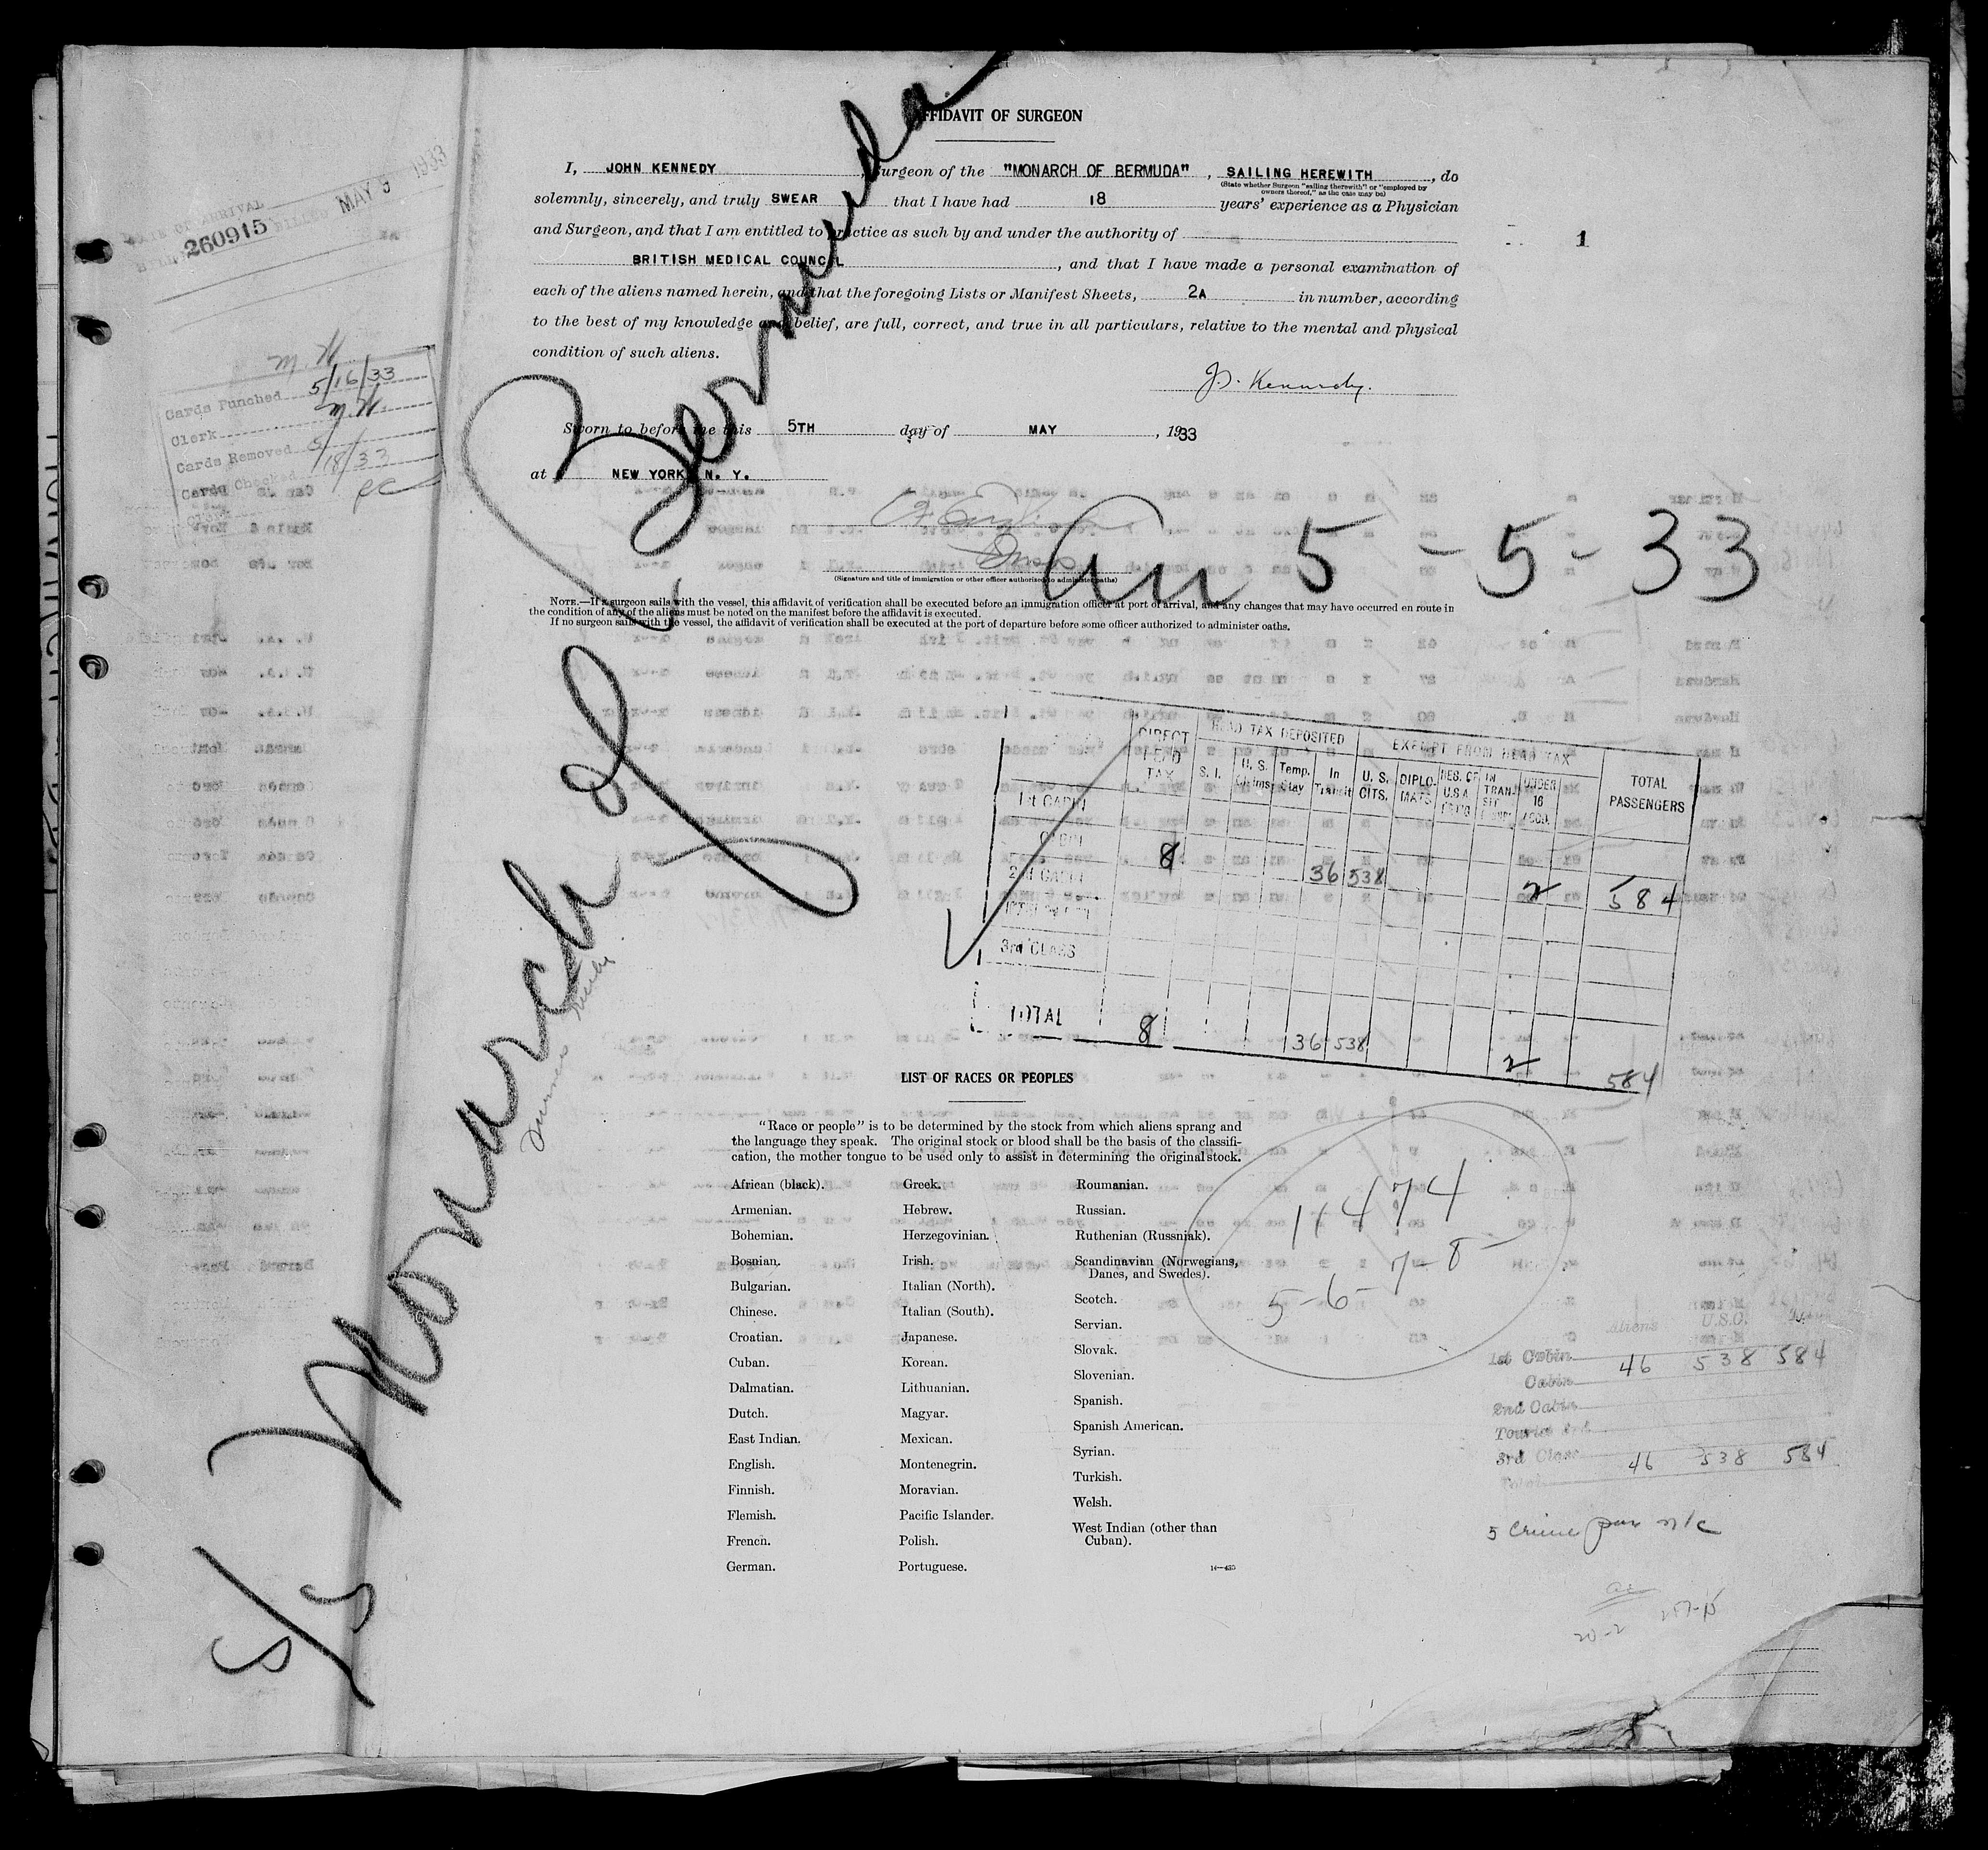 AFFIDAVIT OF SURGEON
I, JOHN KENNEDY, Surgeon of the "MONARCH OF BERMUDA", SAILING HEREWITH, do
(State whether Surgeon "sailing therewith" or "employed by
owners thereof," as the case may be)
solemnly, sincerely, and truly SWEAR that I have had 18 years' experience as a Physician
and Surgeon, and that I am entitled to practice as such by and under the authority of
BRITISH MEDICAL COUNCIL, and that I have made a personal examination of
each of the aliens named herein, and that the foregoing Lists or Manifest Sheets, 2A in number, according
to the best of my knowledge and belief, are full, correct, and true in all particulars, relative to the mental and physical
condition of such aliens.
J. Kennedy.
Sworn to before me this 5TH day of MAY, 1933
at NEW YORK, N. Y.
(Signature and title of immigration or other officer authorized to administer oaths)
NOTE.—If a surgeon sails with the vessel, this affidavit of verification shall be executed before an immigration officer at port of arrival, and any changes that may have occurred en route in
the condition of any of the aliens must be noted on the manifest before the affidavit is executed.
If no surgeon sails with the vessel, the affidavit of verification shall be executed at the port of departure before some officer authorized to administer oaths.
1
260915 MAY 5 1933
M. N.
Cards Punched 5/16/33
Clerk M. N.
Cards Removed 5/18/33
Cards Checked
S/S Monarch of Bermuda
Arr 5-5-33
DIRECT HEAD TAX
HEAD TAX DEPOSITED
EXEMPT FROM HEAD TAX
TOTAL PASSENGERS
S. I.
U. S. Claims
Temp. Stay
In Transit
U. S. CITS.
DIPLO-MATS
RES. OF U.S.A.
IN TRAN-SIT
UNDER 16
1st CABIN
CABIN 8 36 538 2 584
2nd CABIN
3rd CLASS
TOTAL 8 36 538 2 584
LIST OF RACES OR PEOPLES
"Race or people" is to be determined by the stock from which aliens sprang and
the language they speak. The original stock or blood shall be the basis of the classifi-
cation, the mother tongue to be used only to assist in determining the original stock.
African (black).
Armenian.
Bohemian.
Bosnian.
Bulgarian.
Chinese.
Croatian.
Cuban.
Dalmatian.
Dutch.
East Indian.
English.
Finnish.
Flemish.
French.
German.
Greek.
Hebrew.
Herzegovinian.
Irish.
Italian (North).
Italian (South).
Japanese.
Korean.
Lithuanian.
Magyar.
Mexican.
Montenegrin.
Moravian.
Pacific Islander.
Polish.
Portuguese.
Roumanian.
Russian.
Ruthenian (Russniak).
Scandinavian (Norwegians,
Danes, and Swedes).
Scotch.
Servian.
Slovak.
Slovenian.
Spanish.
Spanish American.
Syrian.
Turkish.
Welsh.
West Indian (other than
Cuban).
11474
5-6-7-8
aliens U.S.C.
1st Cabin 46 538 584
Cabin
2nd Cabin
Tourist
3rd Class
Total 46 538 584